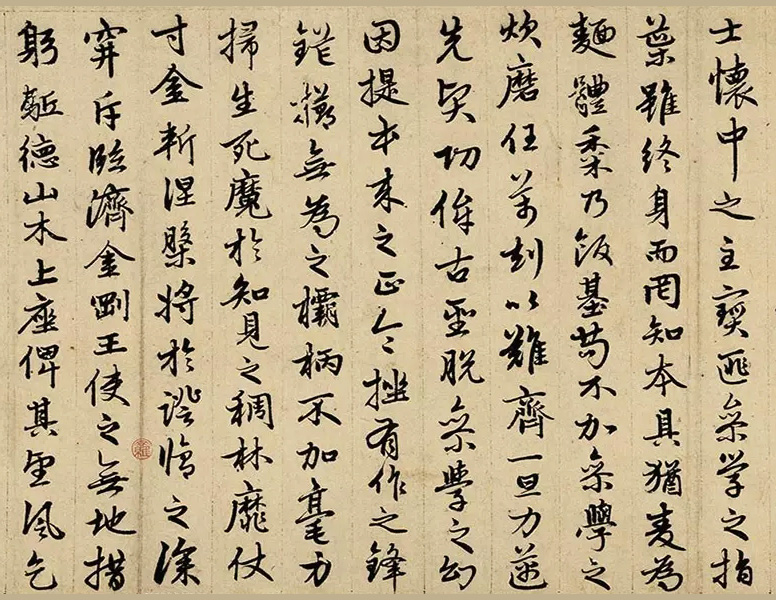 士懷中之主寳匪叅学之指
葉雖終身而罔知本具猶麦為
麺體黍乃飯基苟不加叅學之
炊磨任萬刼以難齊一旦力遮
先契功侔古聖脱叅學之
因提本来之正令挫有作之鋒
鋩橫無為之欛柄不加毫力
掃生死魔於知見之稠林靡仗
寸金斬涅槃將於證悟之深
穽斥臨濟金剛王使之無地措
躬駈德山木上座俾其望風乞